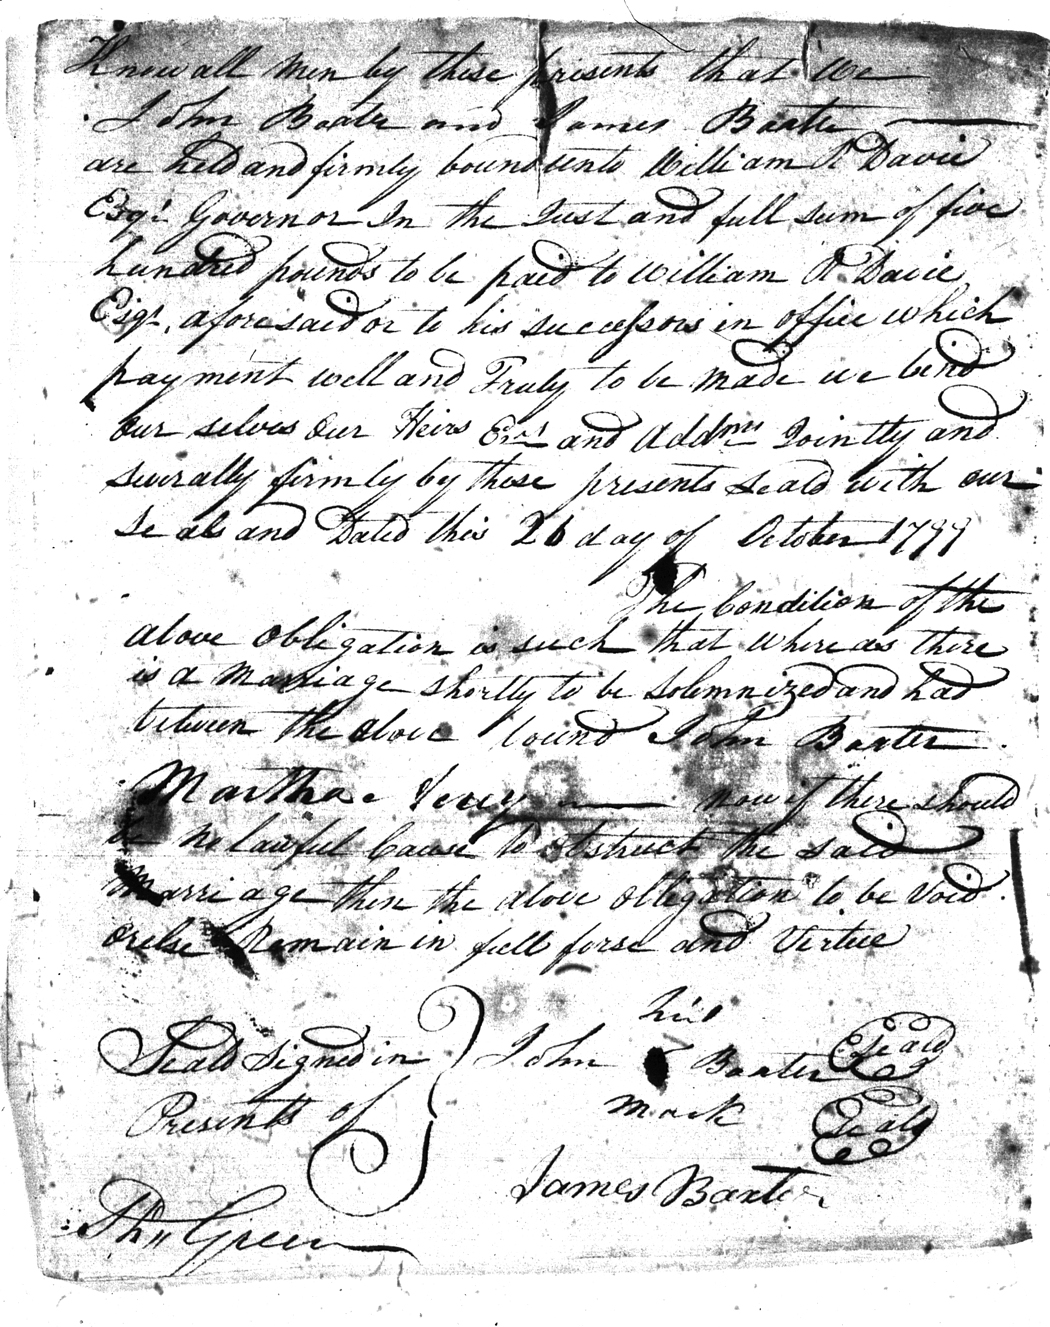 Know all men by these presents that We
John Baxter and James Baxter
are held and firmly bound unto William R Davie
Esqr. Governor In the Just and full sum of five
hundred pounds to be paid to William R Davie
Esqr. aforesaid or to his successors in office which
payment well and Truly to be made we bind
our selves our Heirs Exrs and Addmrs Jointly and
severally firmly by these presents Seald with our
Seals and Dated this 26 day of October 1799
The Condition of the
above obligation is such that where as there
is a Marriage shortly to be Solemnized and had
between the above bound John Baxter
Martha now if there should
be No lawful Cause to obstruct the said
Marriage then the above obligation to be Void
or else Remain in full forse and Virtue
his
Seald Signed in John Baxter Seald
Presents of mark Seald
James Baxter
Thos Green